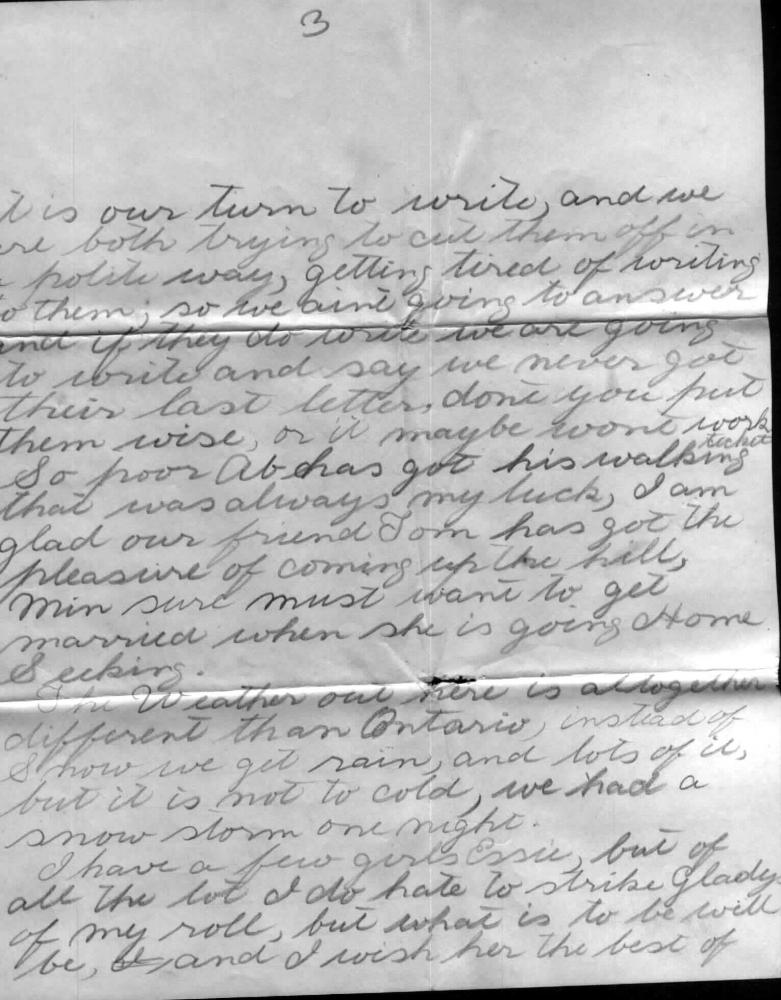 3
t is our turn to write, and we
re both trying to cut them off in
polite way, getting tired of writing
o them; so we aint going to answer
and if they do write we are going
to write and say we never got
their last letter, dont you put
them wise, or it maybe wont work
So poor Ab has got his walking ticket
that was always my luck, I am
glad our friend Tom has got the
pleasure of coming up the hill,
Min sure must want to get
married when she is going Home
Seeking.
The Weather out here is altogether
different than Ontario, instead of
Snow we get rain, and lots of it,
but it is not to cold, we had a
snow storm one night.
I have a few girls Essie, but of
all the lot I do hate to strike Gladys
of my roll, but what is to be will
be, and I wish her the best of